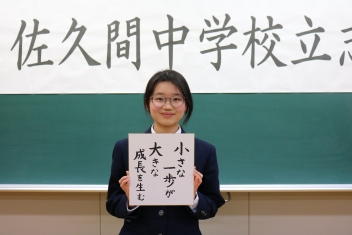 佐久間中学校立志
小さな
一歩が
大きな
成長を生む